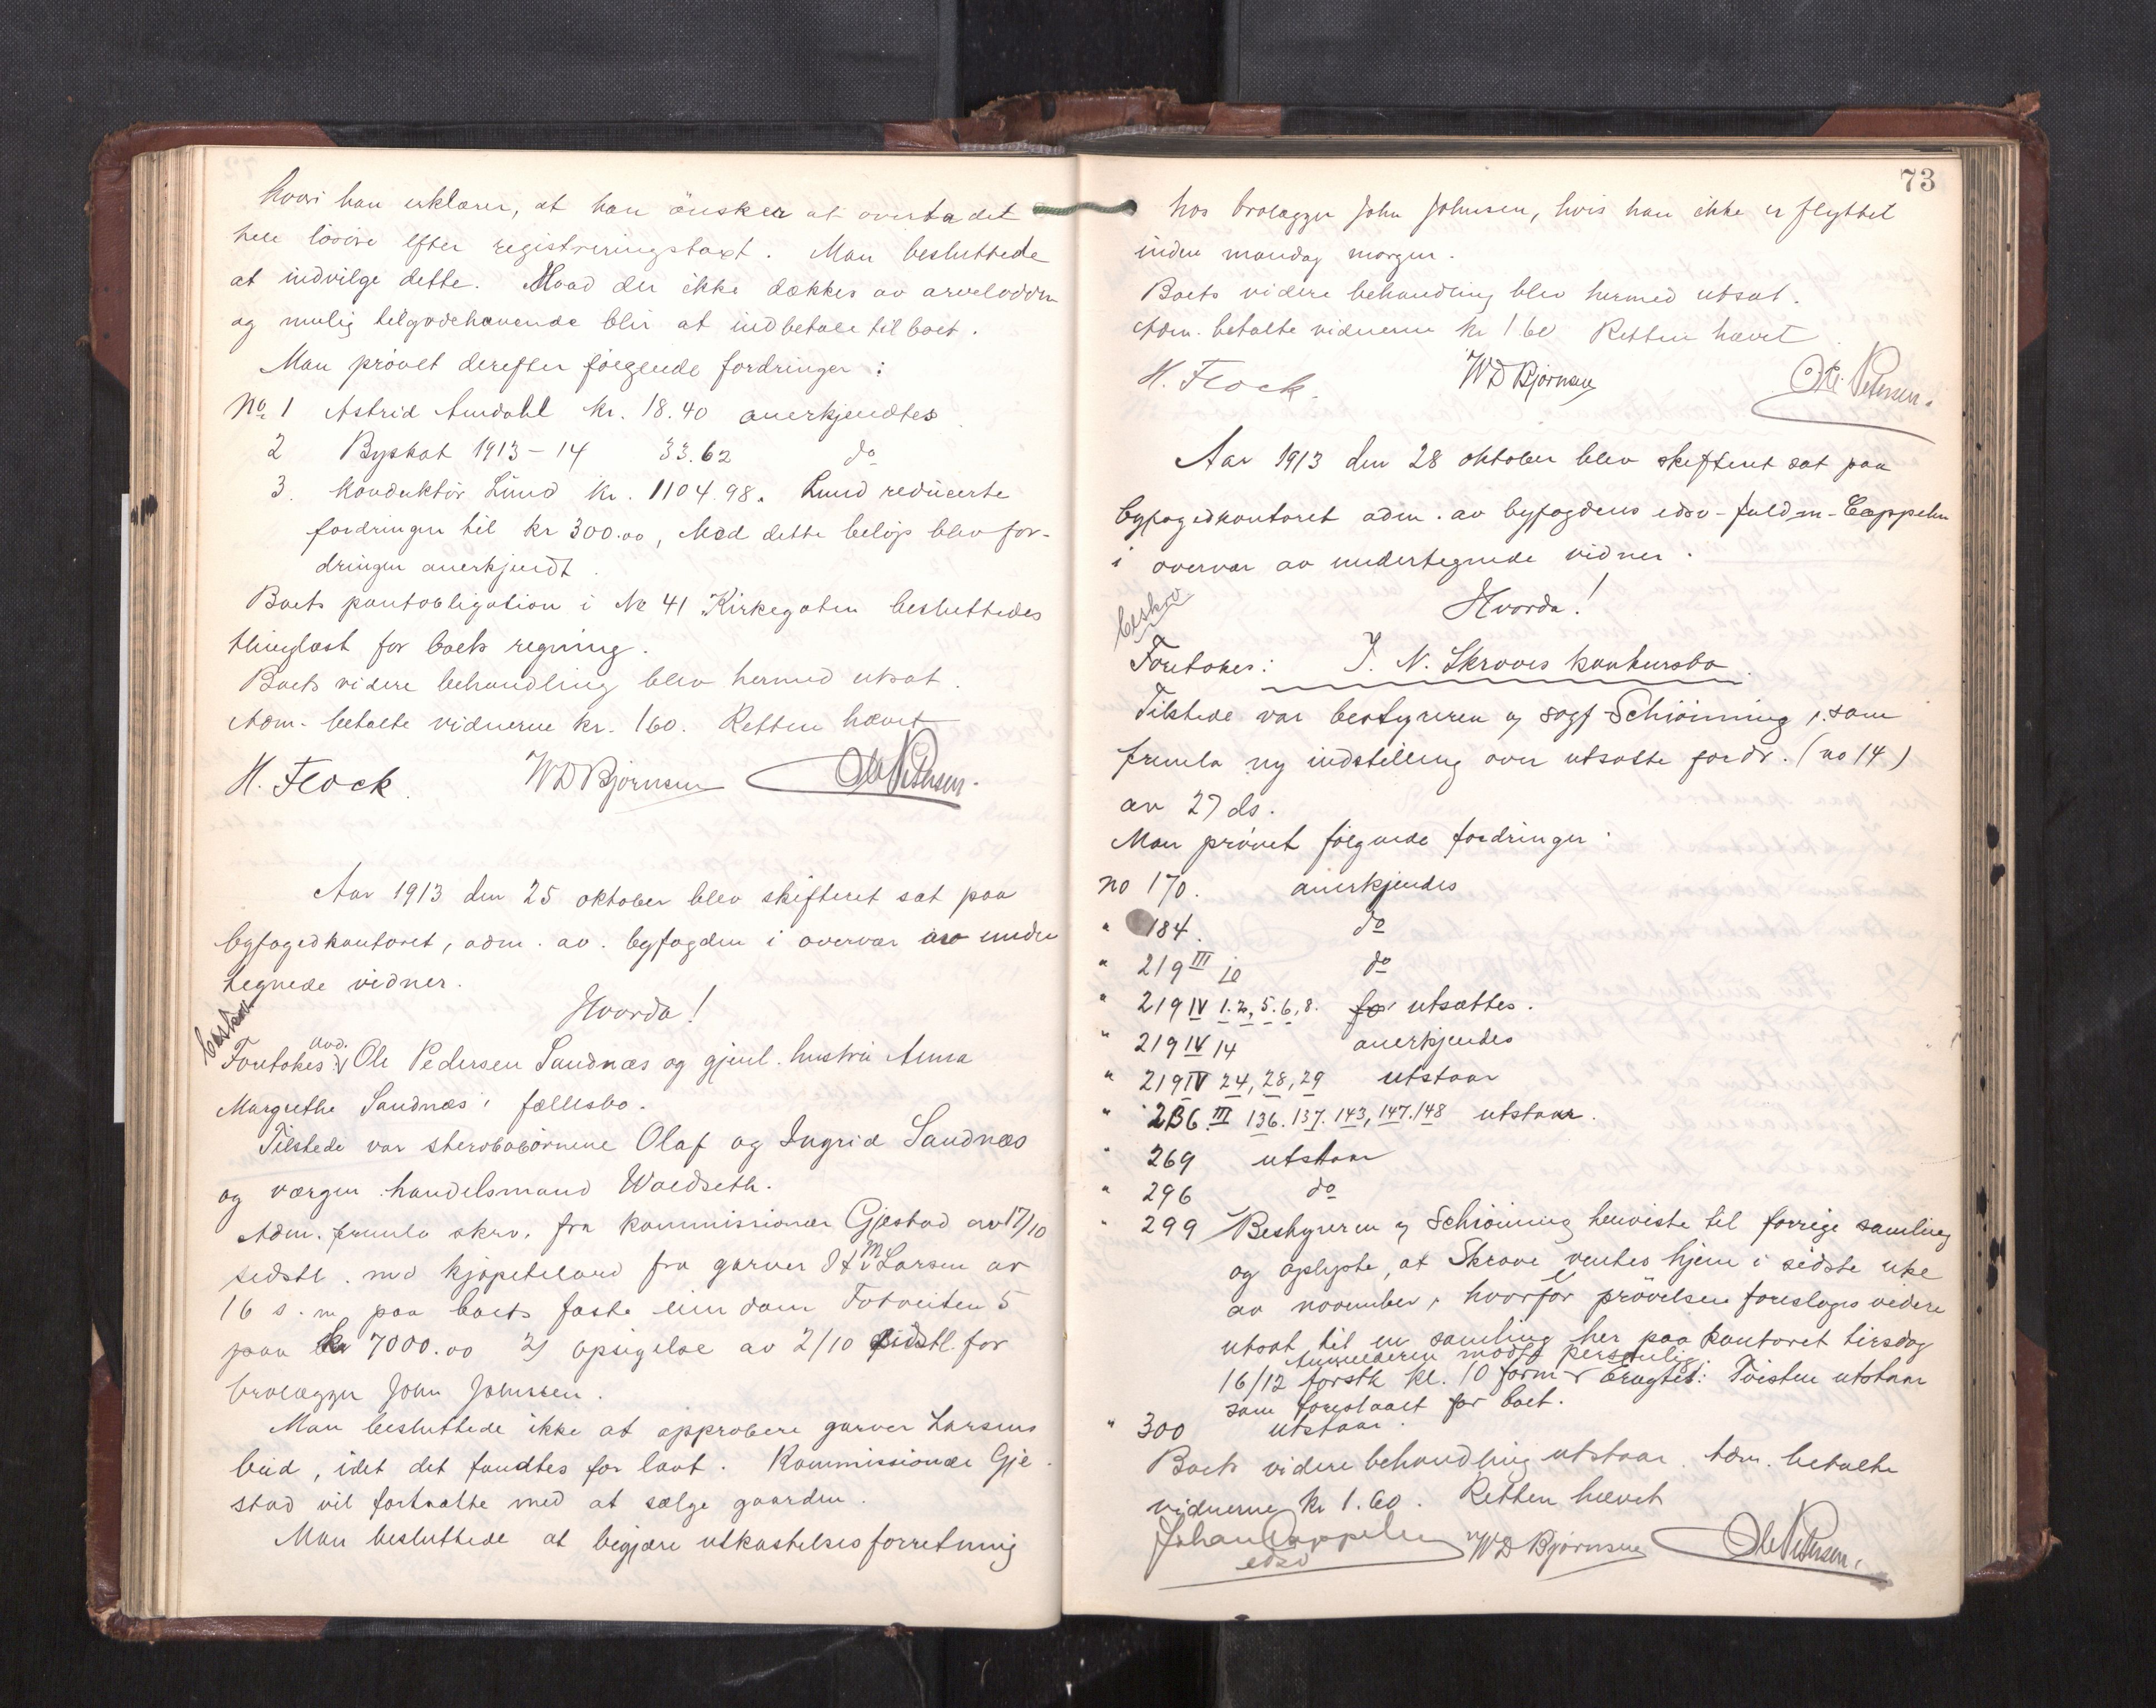 hvori han erklærer, at han önsker at overta det
hele lösöre efter registreringstaxt. Man besluttede
at indvilge dette. Hvad der ikke dækkes av arvelodden
og mulig tilgodehavende blir at indbetale til boet.
Man prövet derefter fölgende fordringer:
No. 1 Astrid Amdahl kr. 18.40 anerkjendtes
2 Byskat 1913-14 33.62 do
3. Konduktör Lund kr. 1104.98. Lund reducerte
fordringen til kr 300.00, Med dette belöp blev for-
dringen anerkjendt.
Boets pantobligation i No 41 Kirkegaten besluttedes
thinglæst for boets regning.
Boets videre behandling blev hermed utsat.
Adm. betalte vidnerne kr. 1.60. Retten hævet
H. Flock. WD Bjørnsen Ole Petersen.
Aar 1913 den 25 oktober blev skifteret sat paa
byfogedkontoret, adm. av. byfogden i overvær av under
tegnede vidner.
Hvorda!
beskr
Foretokes: avd. Ole Pedersen Sandnæs og gjenl. hustru Anna
Margrethe Sandnæs' fællesbo.
Tilstede var sterbobörnene Olaf og Ingrid Sandnæs
og værgen handelsmand Woldseth.
Adm. fremla skrv. fra kommissionær Gjestad av 17/10
sidstl. med kjöpetilbud fra garver H M Larsen av
16 s. m. paa boets faste eiendom Totveiten 5
paa kr 7000.00 2) opsigelse av 2/10 sidstl. for
brolægger John Johnsen.
Man besluttede ikke at approbere garver Larsens
bud, idet det fandtes for lavt. Kommissionær Gje
stad vil fortsætte med at sælge gaarden.
Man besluttede at begjære utkastelsesforretning
73
hos brolægger John Johnsen, hvis han ikke er flyttet
inden mandag morgen.
Boets videre behandling blev hermed utsat.
Adm. betalte vidnerne kr 1.60 Retten hævet.
H. Flock. WD Bjørnsen Ole Petersen.
Aar 1913 den 28 oktober blev skifteret sat paa
byfogedkontoret adm. av byfogdens edsv-fuldm- Cappelen
i overvær av undertegnede vidner.
Hvorda!
beskrv
Foretokes: J. N. Skroves konkursbo.
Tilstede var bestyreren og sagf Schiönning, som
fremla ny indstilling over utsatte fordr. (no 14)
av 27 ds.
Man prövet fölgende fordringer:
no 170. anerkjendes
" 184. do
" 219 III je do
" 219 IV 1.2,5.6,8. utsættes.
" 219 IV 14 anerkjendes
" 219 IV 24, 28, 29 utstaar
" 236 III 136. 137. 143, 147. 148 utstaar.
" 269 utstaar
" 296 do
" 299 Bestyreren og Schiönning henviste til forrige samling
og oplyste, at Skrove ventes hjem i sidste uke
av november, hvorfor prövelsen foreslages videre
utsat til en samling her paa kontoret tirsdag
Anmelderen mödte personlig.
16/12 förstk kl. 10 form Eragtet: Tvisten utstaar
som foreslaaet for boet.
" 300 utstaar.
Boets videre behandling utstaar. Adm. betalte
vidnerne kr 1.60. Retten hævet
Johan Cappelen WD Bjørnsen Ole Petersen.
edsv